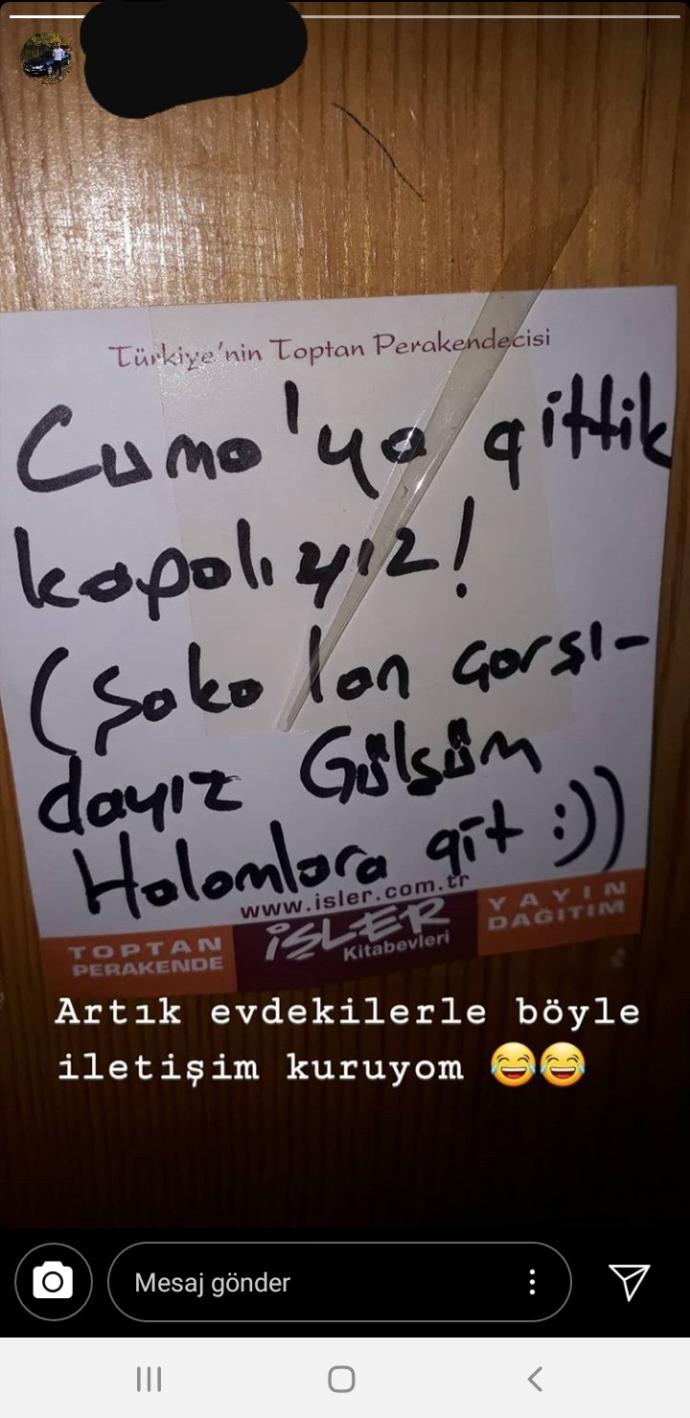 Türkiye'nin Toptan Perakendecisi
Cuma'ya gittik
kapalıyız!
(Şaka lan çarşı-
dayız Gülsüm
Halamlara git :))
www.isler.com.tr
TOPTAN
PERAKENDE
İŞLER
Kitabevleri
YAYIN
DAĞITIM
Artık evdekilerle böyle
iletişim kuruyom 😂😂
Mesaj gönder